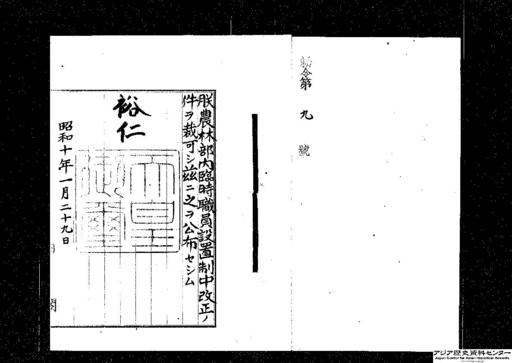 勅令第九號
朕農林部內臨時職員設置制中改正ノ
件ヲ裁可シ茲ニ之ヲ公布セシム
裕仁
天皇御璽
昭和十年一月二十九日
アジア歴史資料センター
Japan Center for Asian Historical Records